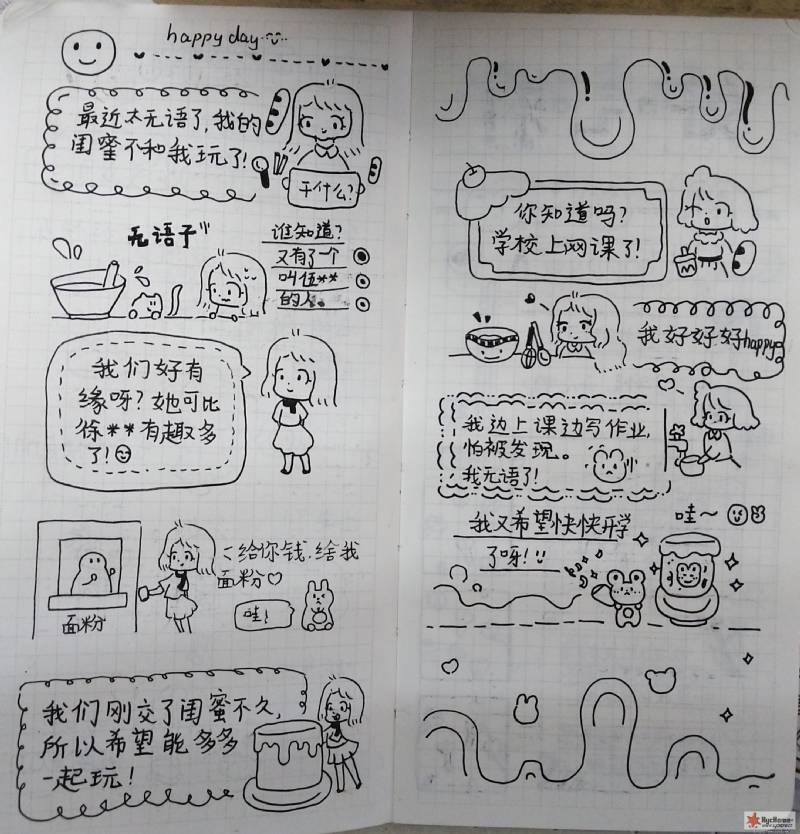 happy day
最近太无语了,我的
闺蜜不和我玩了!
干什么?
无语子
谁知道?
又有了一个
叫伍**
的人.
我们好有
缘呀?她可比
徐**有趣多
了!
给你钱.给我
面粉
哇!
面粉
我们刚交了闺蜜不久,
所以希望能多多
一起玩!
你知道吗?
学校上网课了!
我好好好happy
我边上课边写作业,
怕被发现。
我无语了!
哇~
我又希望快快开学
了呀!